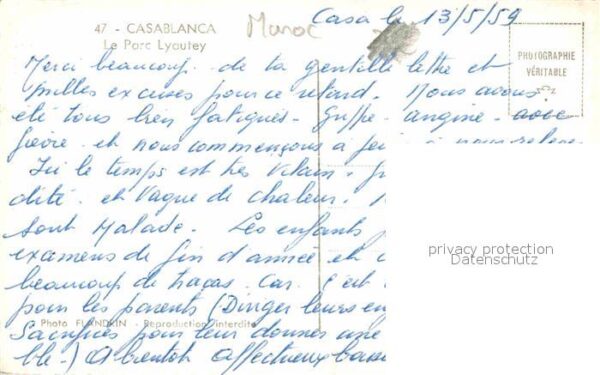 47 - CASABLANCA
Le Parc Lyautey
Maroc
Casa le 13/5/59
PHOTOGRAPHIE
VÉRITABLE
Merci beaucoup de ta gentille lettre et
milles excuses pour ce retard. Nous avons
été tous bien fatigués - Grippe - angine - avec
fièvre et nous commençons à
Ici le temps est très vilain.
dité. et Vague de chaleur.
sont Malade. Les enfants
examens de fin d'année et
beaucoup de tracas. Car. C'est
pour les parents (Diriger leurs en
Photo FLANDRIN - Reproduction interdite
Sacrifices pour leur donner une
ble.) A bientot affectueux baise
privacy protection
Datenschutz